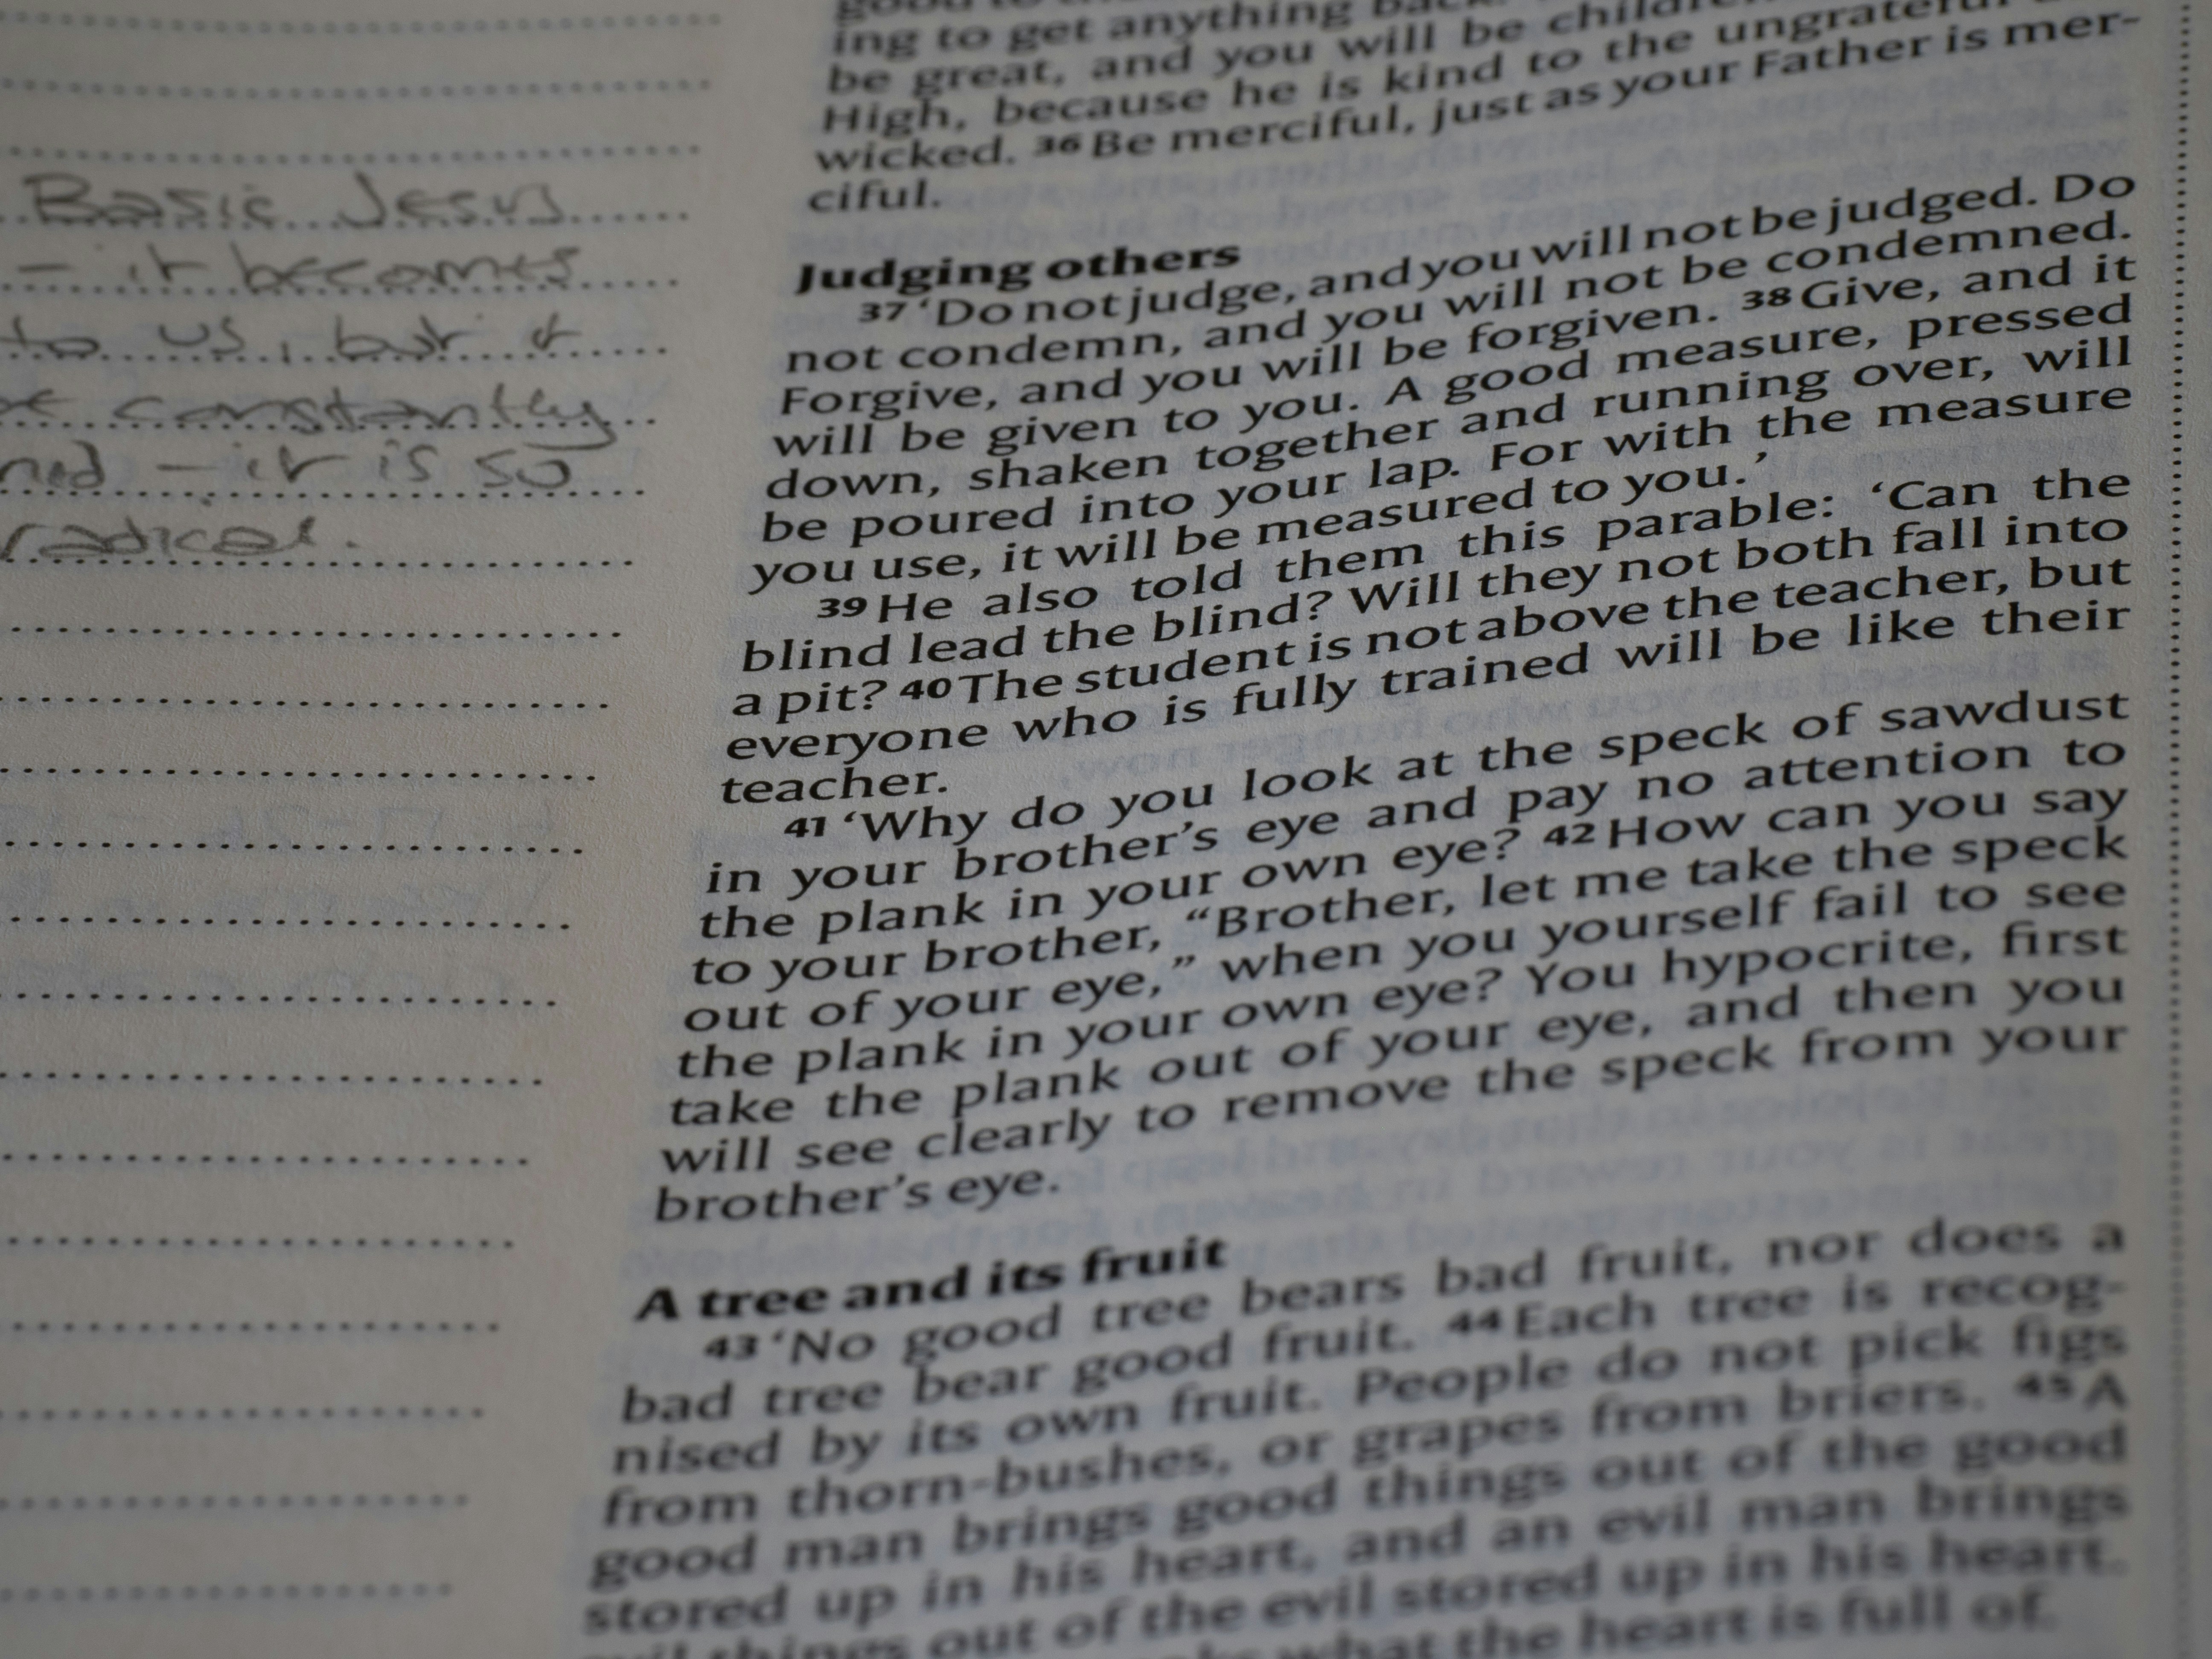 Basic Jesus
– it becomes
to us, but it
constantly
– it is so
radical.
ing to get anything back.
be great, and you will be
High, because he is kind to the ungrateful
wicked. 36 Be merciful, just as your Father is mer-
ciful.
Judging others
37 ‘Do not judge, and you will not be judged. Do
not condemn, and you will not be condemned.
Forgive, and you will be forgiven. 38 Give, and it
will be given to you. A good measure, pressed
down, shaken together and running over, will
be poured into your lap. For with the measure
you use, it will be measured to you.’
39 He also told them this parable: ‘Can the
blind lead the blind? Will they not both fall into
a pit? 40 The student is not above the teacher, but
everyone who is fully trained will be like their
teacher.
41 ‘Why do you look at the speck of sawdust
in your brother’s eye and pay no attention to
the plank in your own eye? 42 How can you say
to your brother, “Brother, let me take the speck
out of your eye,” when you yourself fail to see
the plank in your own eye? You hypocrite, first
take the plank out of your eye, and then you
will see clearly to remove the speck from your
brother’s eye.
A tree and its fruit
43 ‘No good tree bears bad fruit, nor does a
bad tree bear good fruit. 44 Each tree is recog-
nised by its own fruit. People do not pick figs
from thorn-bushes, or grapes from briers. 45 A
good man brings good things out of the good
stored up in his heart, and an evil man brings
evil things out of the evil stored up in his heart.
what the heart is full of.